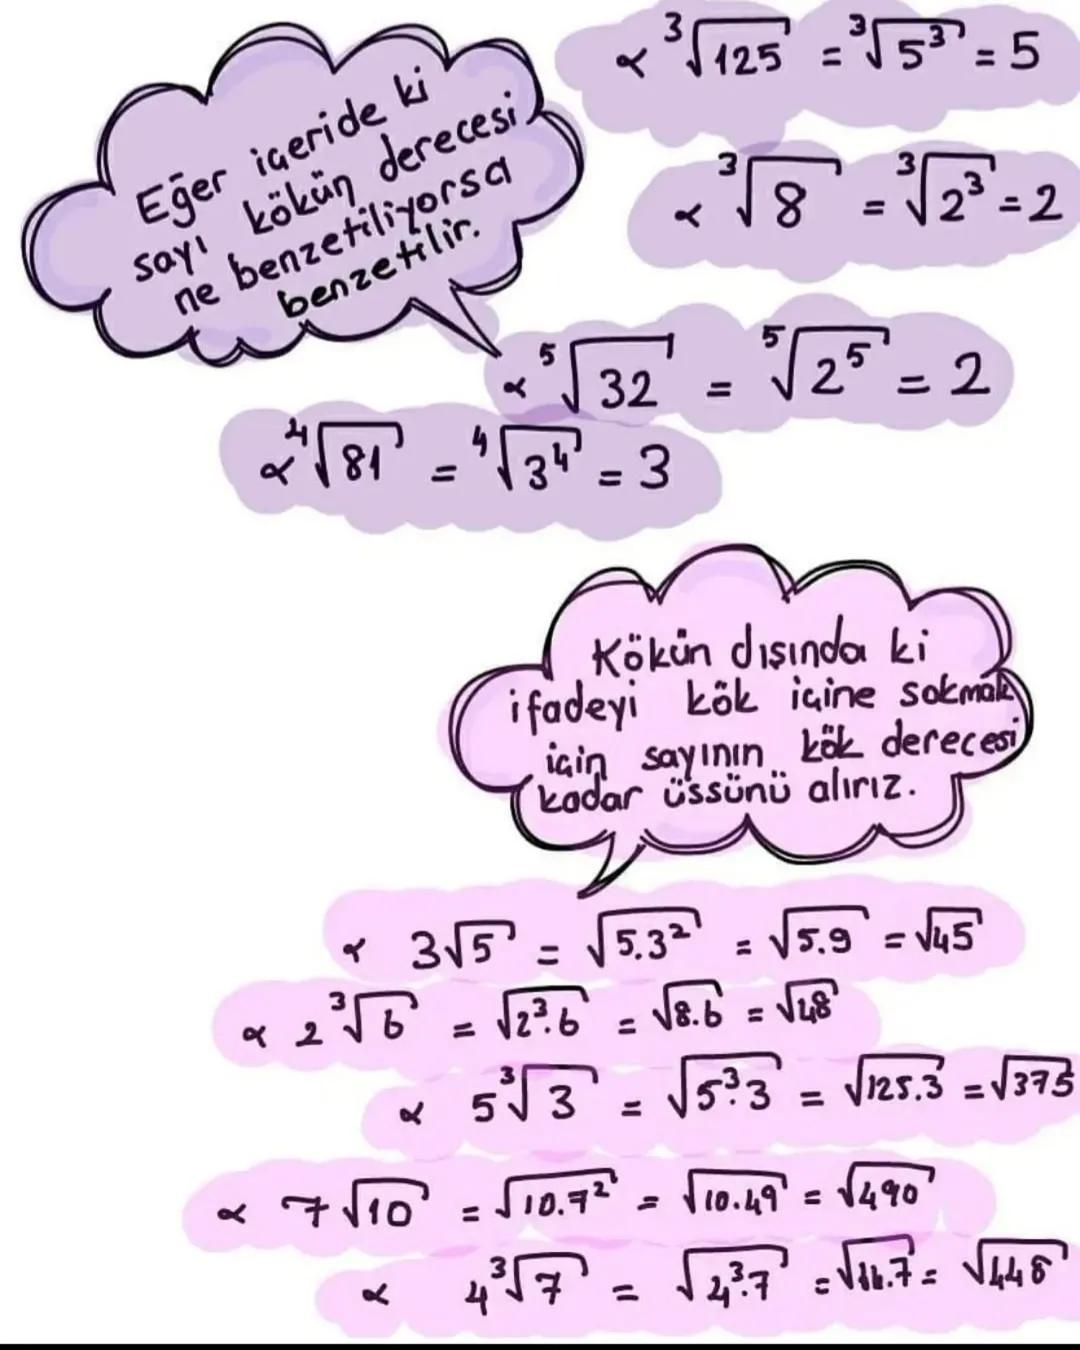 Eğer içeride ki
sayı kökün derecesi
ne benzetiliyorsa
benzetilir.
∝ ³√125 = ³√5³ = 5
∝ ³√8 = ³√2³ = 2
∝ ⁵√32 = ⁵√2⁵ = 2
∝ ⁴√81 = ⁴√3⁴ = 3
Kökün dışında ki
ifadeyi kök içine sokmak
için sayının kök derecesi
kadar üssünü alırız.
∝ 3√5 = √5.3² = √5.9 = √45
∝ 2³√6 = √2³.6 = √8.6 = √48
∝ 5³√3 = √5³.3 = √125.3 = √375
∝ 7√10 = √10.7² = √10.49 = √490
∝ 4³√7 = √4³.7 = = √448